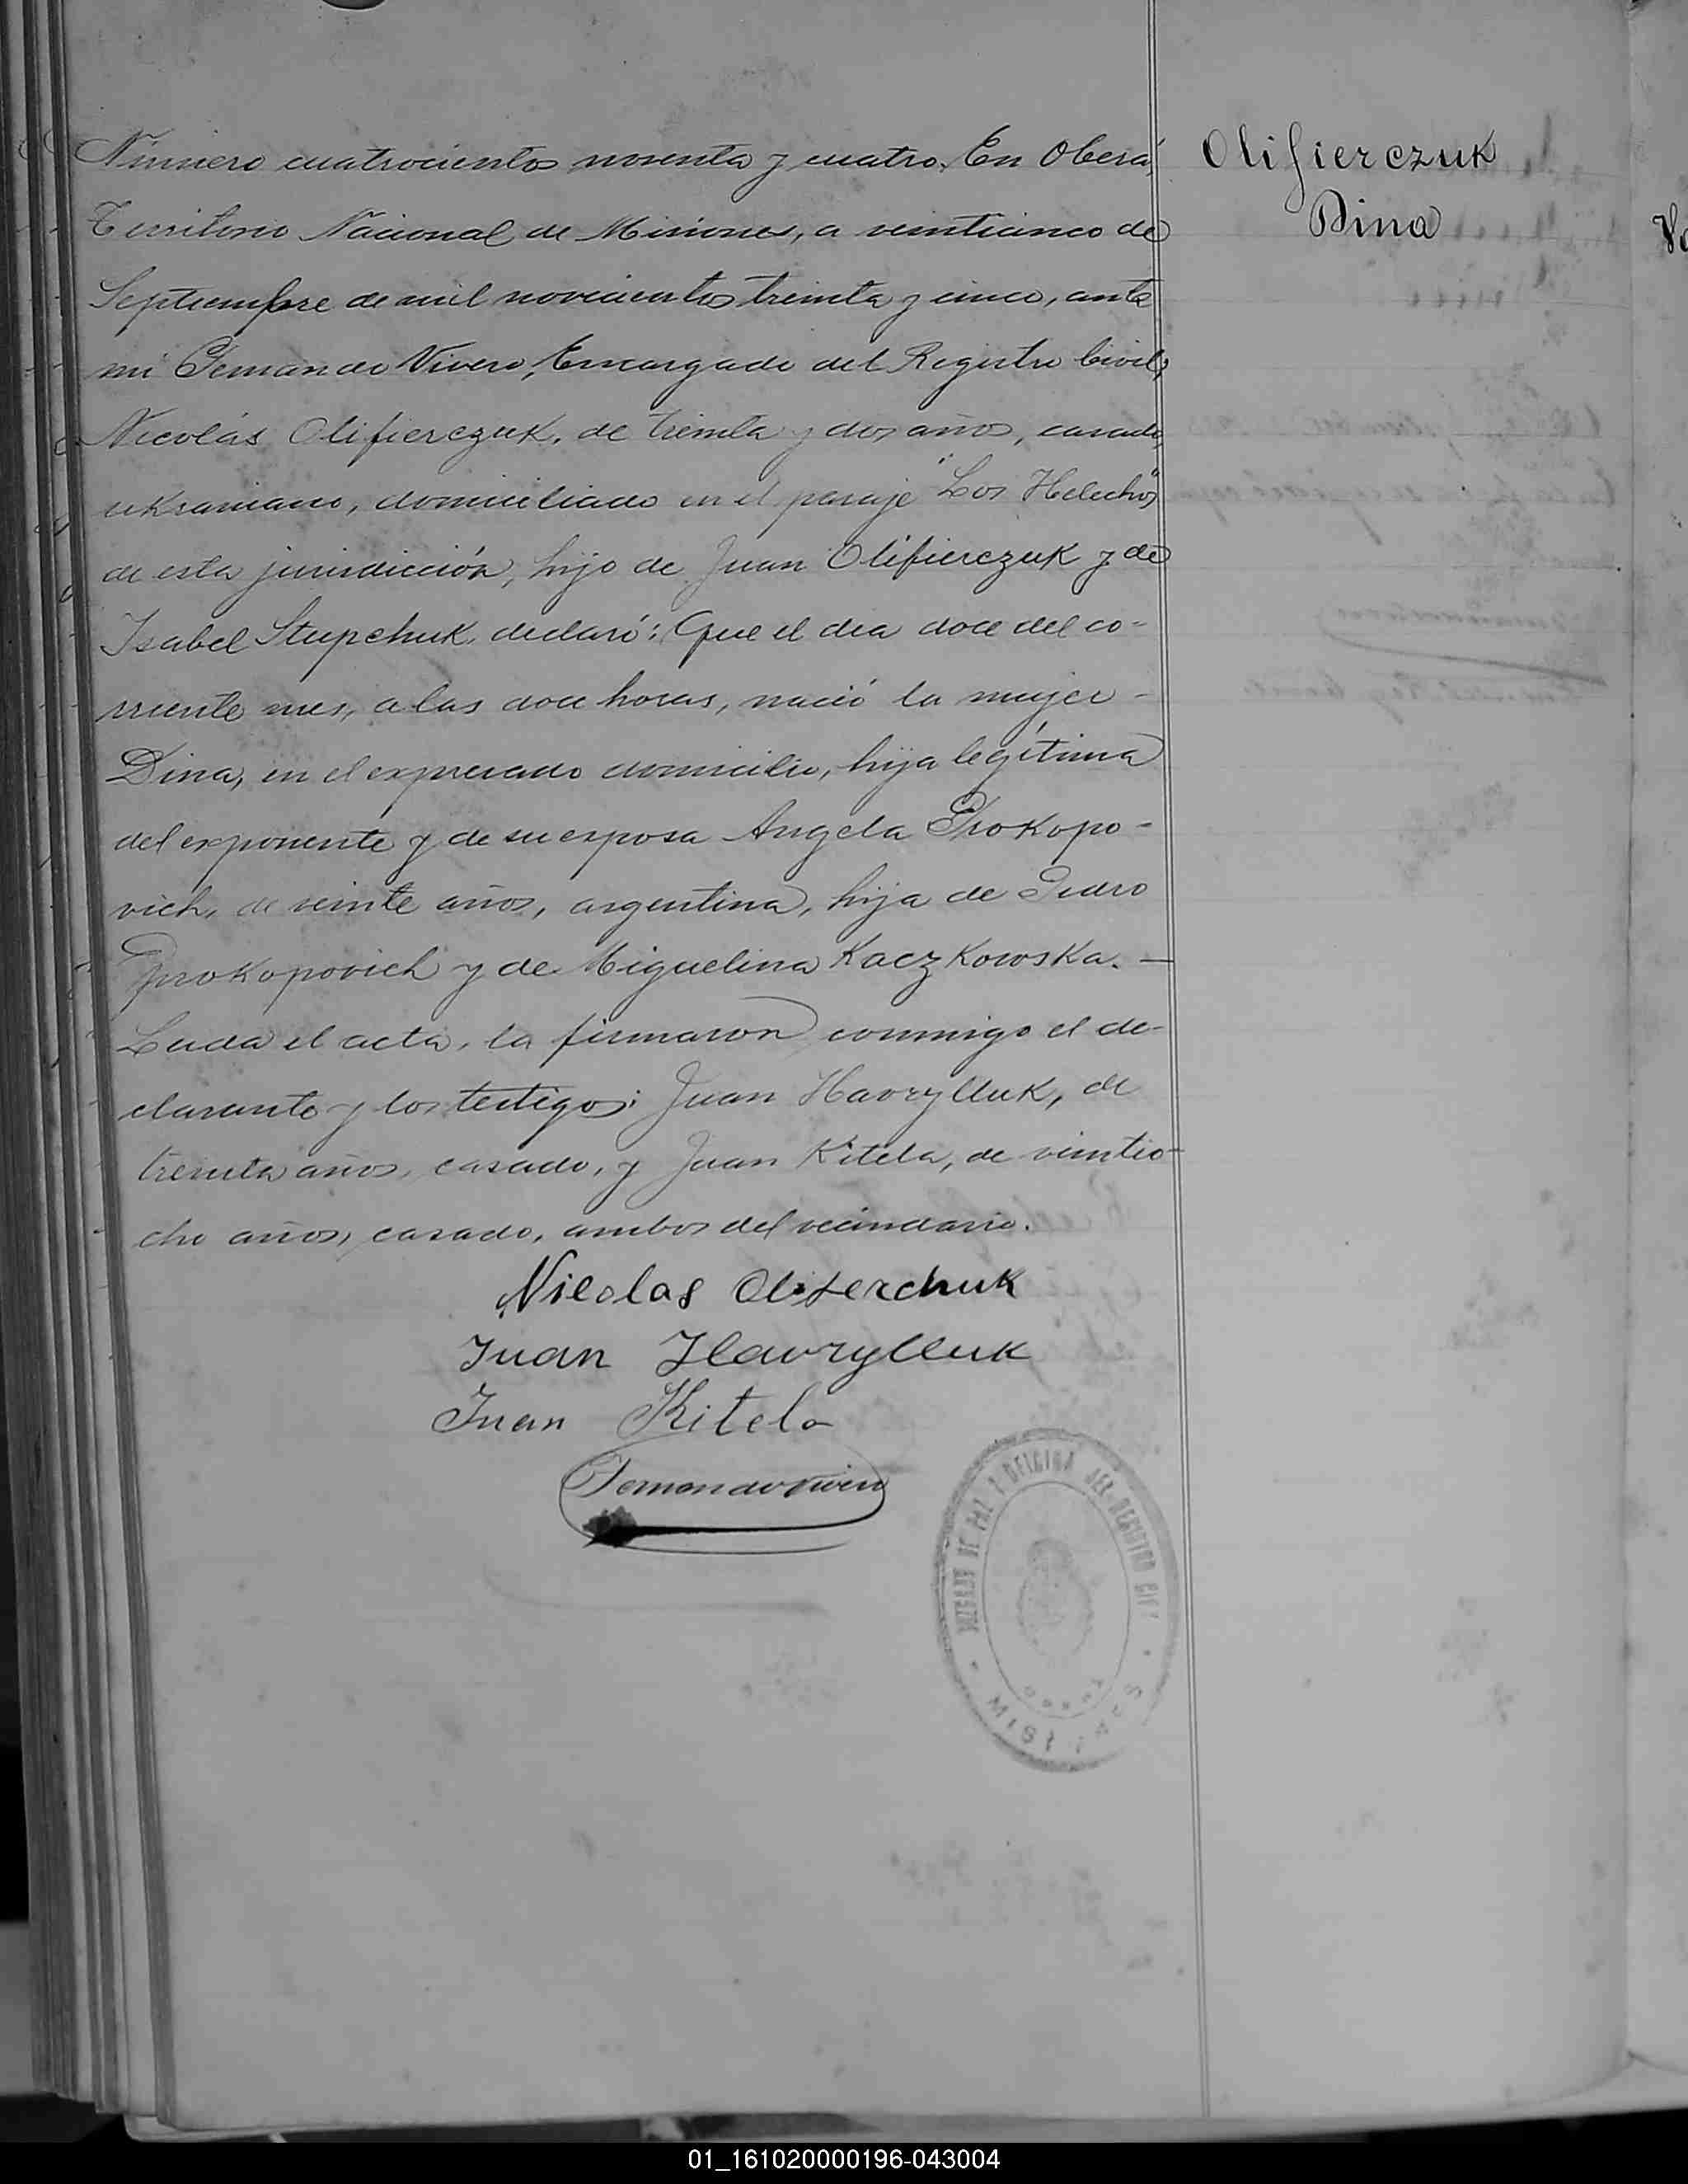 Número cuatrocientos noventa y cuatro. En Oberá,
Territorio Nacional de Misiones, a veinticinco de
Septiembre de mil novecientos treinta y cinco, ante
mi Vivero, Encargado del Registro Civil,
Nicolás Olifierczuk, de treinta y dos años, casado,
ukraniano, domiciliado en el paraje "Los Helechos"
de esta jurisdicción, hijo de Juan Olifierczuk y de
Isabel Stupchuk, declaró: Que el dia doce del co-
rriente mes, a las doce horas, nació la mujer -
Dina, en el expresado domicilio, hija legítima
del exponente y de su esposa Angela Prokopo-
vich, de veinte años, argentina, hija de Pedro
Prokopovich y de Miguelina Kaczkowska. —
Leida el acta, la firmaron conmigo el de-
clarante y los testigos: Juan Havrylluk, de
treinta años, casado, y Juan Kitela, de veintio-
cho años, casado, ambos del vecindario.
Nicolas
Juan Havrylluk
Juan Kitela
JUZGADO DE PAZ Y OFICINA DEL REGISTRO CIVIL
OBERA
MISIONES
Olifierczuk
Dina
01_161020000196-043004